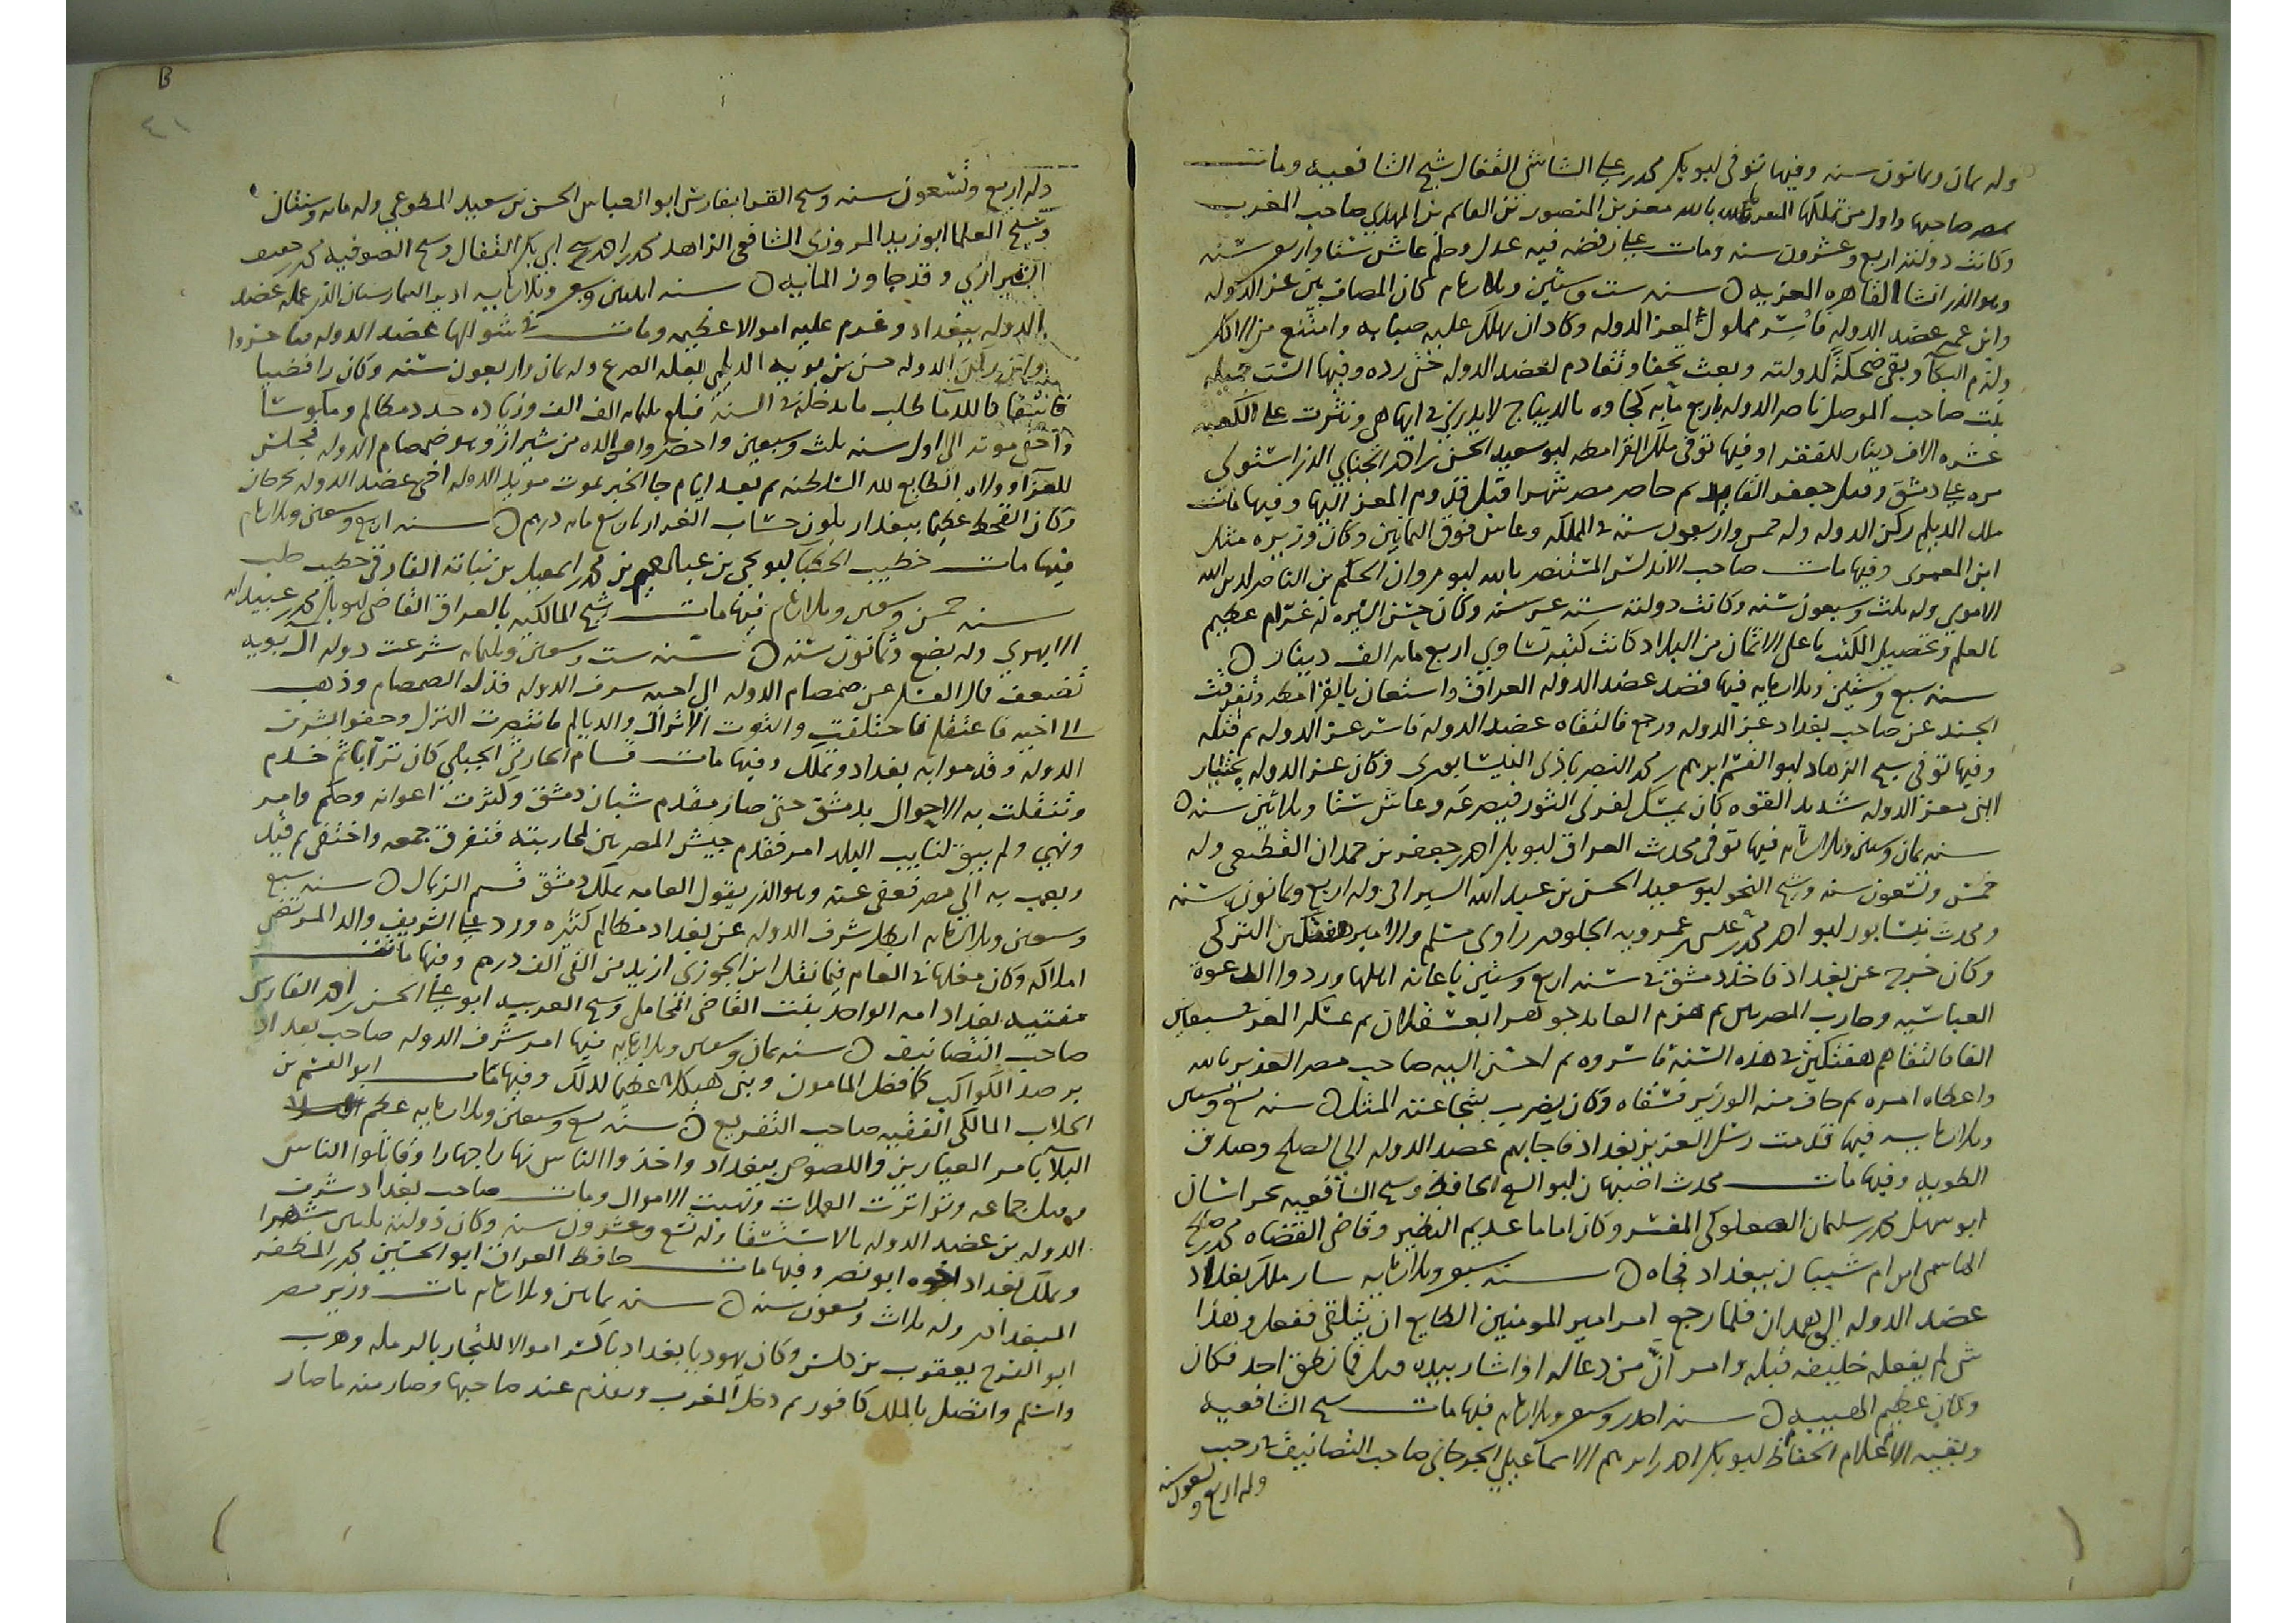 وله ثمان وثمانون سنه وفيها توفى ابو بكر محمد بن علي الشاشي القفال شيخ الشافعيه ومات
بمصر صاحبها واول من تملكها المعز بالله معز بن المنصور بن القايم بن المهدي صاحب المغرب
وكانت دولته اربع وعشرون سنه ومات على رفضه فيه عدل وحلم عاش ستا واربعين سنه
وهو الذي انشا القاهره المعزيه ه سنه ست وستين وثلاثمايه كان المصاف بين عز الدوله
وابن عمه عضد الدوله فاُسِر مملوك لعز الدوله وكاد ان يهلك عليه صبابه وامتنع من الاكل
ولزم البكا وبقى ضحكة لدولته وبعث تحفا وتقادم لعضد الدوله حتى رده وفيها الست جميله
بنت صاحب الموصل ناصر الدوله باربع مايه كجاوه بالديباج لا يدرى في ايها هي ونثرت على الكعبه
عشره الاف دينار للفقرا وفيها توفى ملك القرامطه ابو سعيد الحسن بن احمد الجنابي الذي استولى
مره على دمشق وقتل جعفر القايد ثم حاصر مصر شهرا قبل قدوم المعز اليها وفيها مات
ملك الديلم ركن الدوله وله خمس واربعون سنه في المملكه وعاش فوق الثمانين وكان وزيره مثل
ابن العميد وفيها مات صاحب الاندلس المستنصر بالله ابو مروان الحكم بن الناصر لدين الله
الاموي وله ثلث وسبعون سنه وكانت دولته ستة عشر سنه وكان حسن السيره له غرام عظيم
بالعلم وتحصيل الكتب باعلى الاثمان من البلاد كانت كتبه تساوي اربع مايه الف دينار ه
سنه سبع وستين وثلاثمايه فيها قصد عضد الدوله العراق واستعان بالقرامطه وتفرقت
الجند عن صاحب بغداد عز الدوله ورجع فالتقاه عضد الدوله فاسر عز الدوله ثم قتله
وفيها توفى شيخ الزهاد ابو القسم ابرهيم بن محمد النصرباذى النيسابورى وكان عز الدوله بختيار
ابن معز الدوله شديد القوه كان يمسك بقرنى الثور فيصرعه وعاش ستا وثلاثين سنه ه
سنه ثمان وستين وثلاثمايه فيها توفى محدث العراق ابو بكر احمد بن جعفر بن حمدان القطيعى وله
خمس وتسعون سنه وشيخ النحو ابو سعيد الحسن بن عبد الله السيرافى وله اربع وثمانون سنه
ومحدث نيسابور ابو احمد محمد بن عيسى بن عمرويه الجلودى راوى مسلم والامير هفتكين التركى
وكان خرج عن بغداد فاخذ دمشق في سنه اربع وستين باعانه اهلها وردوا الدعوة
العباسيه وحارب المصريين ثم هزم القايد جوهر الى عسقلان ثم عسكر المعز سبعين
الفا فالتقاهم هفتكين في هذه السنة فاسروه ثم احسن اليه صاحب مصر العزيز بالله
واعطاه امره ثم خاف منه الوزير فسقاه وكان يضرب بشجاعته المثل ه سنه تسع وستين
وثلاثمايه فيها قدمت رسل العزيز بغداد فاجابهم عضد الدوله الى الصلح وصدق
الطويه وفيها مات محدث اصبهان ابو الشيخ الحافظ وشيخ الشافعيه بخراسان
ابو سهل محمد بن سليمان الصعلوكي المفسر وكان اماما عديم النظير وقاضي القضاه محمد بن صالح
الهاشمى ابن ام شيبان ببغداد فجاه ه سنه سبعين وثلاثمايه سار ملك بغداد
عضد الدوله الى همدان فلما رجع امر امير المومنين الطايع ان يتلقى ففعل وهذا
شى لم يفعله خليفه قبله وامر انّ من دعا له او اشار بيده قتل فما نطق احد فكان
وكان عظيم الهيبه ه سنه احدى وسبعين وثلاثمايه فيها مات شيخ الشافعيه
وبقيه الاعلام الحفاظ ابو بكر احمد بن ابرهيم الاسماعيلي الجرجاني صاحب التصانيف في رجب
وله اربع وتسعون سنه
B
٤١
وله اربع وتسعون سنه وشيخ القرا بفارس ابو العباس الحسن بن سعيد المطوعي وله مايه وسنتان
وشيخ العلما ابو زيد المروزى الشافعي الزاهد محمد بن احمد شيخ ابي بكر القفال وشيخ الصوفيه محمد بن خفيف
الشيرازي وقد جاوز المايه ه سنه اثنتين وسبعين وثلاثمايه ادير البيمارستان الذي عمله عضد
الدوله ببغداد وغرم عليه اموالا عظيمه ومات في شوالها عضد الدوله فناخسروا
وابن ركن الدوله حسن بن بويه الديلمي بعله الصرع وله ثمان واربعون سنه وكان رافضيا
ما يدخله في السنه فبلغ ثلثمايه الف الف وزياده جدد مظالم ومكوسا
واخفى موته الى اول سنه ثلث وسبعين واحضروا ولده من شيراز وهو صمصام الدوله فجلس
للعزا وولاه الطايع لله السلطنه ثم بعد ايام جا الخبر بموت مويد الدوله اخى عضد الدوله بجرجان
وكان القحط عظيما ببغداد بلغ حساب الغراره باربع مايه درهم ه سنه اربع وسبعين وثلاثمايه
فيها مات خطيب الخطبا ابو يحيى بن عبد الرحيم بن محمد بن اسمعيل بن نباته الفارقى خطيب حلب
سنه خمس وسبعين وثلاثمايه فيها مات شيخ المالكيه بالعراق القاضي ابو بكر محمد بن عبيد الله
الابهري وله بضع وثمانون سنه ه سنه ست وسبعين وثلثمايه شرعت دوله ال بويه
تضعف فمال العسكر عن صمصام الدوله الى اخيه شرف الدوله فذل الصمصام وذهب
الى اخيه فاعتقله فاختلفت والتوت الاتراك والديالم فانتصرت الترك وحفوا بشرف
الدوله وقدموا به بغداد وتملك وفيها مات قسام الحارثي الجبيلي كان ترّابا ثم خدم
وتنقلت به الاحوال بدمشق حتى صار مقدم شبان دمشق وكثرت اعوانه وحكم وامر
ونهي ولم يبق لنايب البلد امر فقدم جيش المصريين لمحاربته فتفرق جمعه واختفى ثم قيد
وبعث به الي مصر فعفي عنه وهو الذي يقول العامه ملك دمشق قسيم الزبال ه سنه سبع
وسبعين وثلاثمايه ابطل شرف الدوله عن بغداد مظالم كثيره ورد على الشريف والد المرتضى
املاكه وكان مغلها في العام فيما نقل ابن الجوزي ازيد من الفى الف درهم وفيها ماتت
مفتيه بغداد امه الواحد بنت القاضي المحاملى وشيخ العربيه ابو علي الحسن بن احمد الفارسى
صاحب التصانيف ه سنه ثمان وسبعين وثلاثمايه فيها امر شرف الدوله صاحب بغداد
برصد الكواكب كما فعل المامون وبنى هيكلا عظيما لذلك وفيها مات ابو القسم بن
الجلاب المالكي الفقيه صاحب التفريع ه سنه تسع وسبعين وثلاثمايه عظم
البلا بامر العيارين واللصوص ببغداد واخذوا الناس نهارا جهارا وقاتلوا الناس
وقتل جماعه وتواترت العملات ونهبت الاموال ومات صاحب بغداد شرف
الدوله بن عضد الدوله بالاستسقا وله تسع وعشرون سنه وكان دولته ثلثين شهرا
وتملك بغداد اخوه ابو نصر وفيها مات حافظ العراق ابو الحسين محمد بن المظفر
البغدادي وله ثلاث وتسعون سنه ه سنه ثمانين وثلاثمايه مات وزير مصر
ابو الفرج يعقوب بن كلس وكان يهوديا بغداديا كسر اموالا للتجار بالرمله وهرب
واسلم واتصل بالملك كافور ثم دخل المغرب وتقدم عند صاحبها وصار منه ما صار